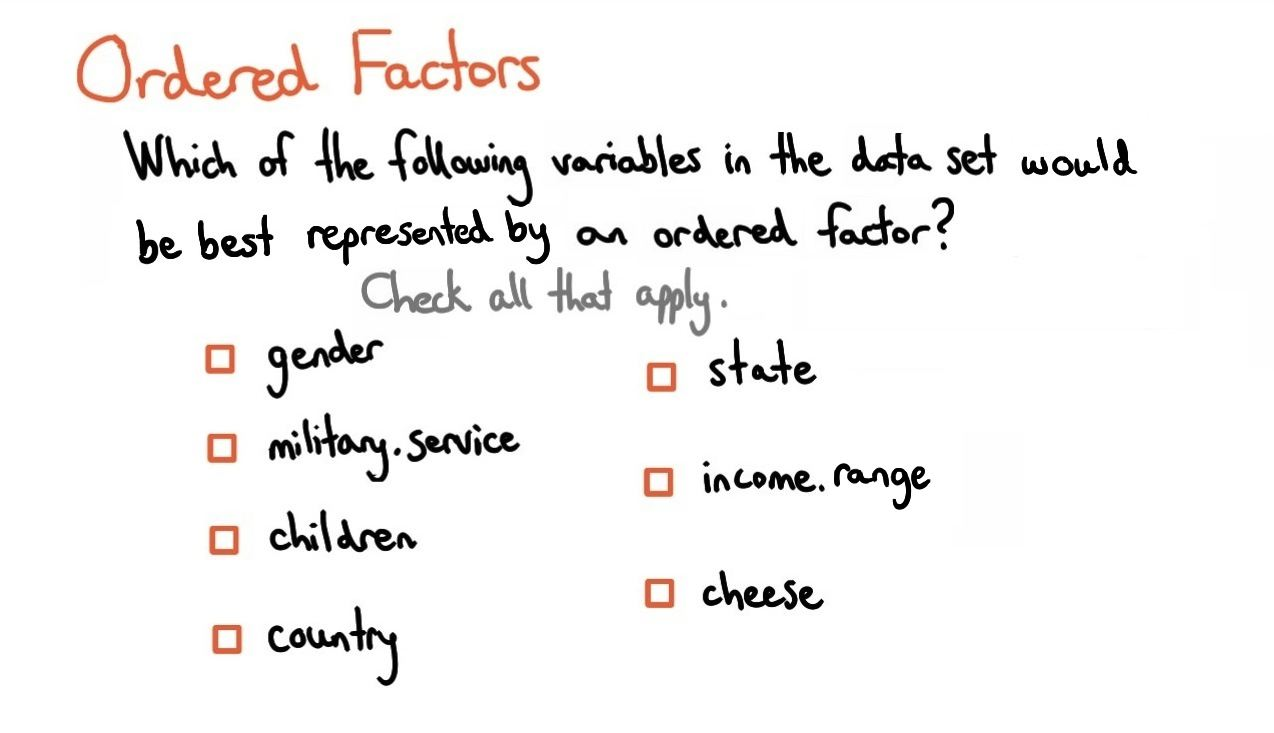 Ordered Factors
Which of the following variables in the data set would
be best represented by an ordered factor?
Check all that apply.
gender
military.service
children
country
state
income.range
cheese